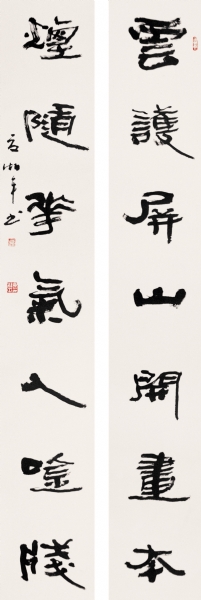 雲護屏山開畫本
煙隨華氣入唫牋